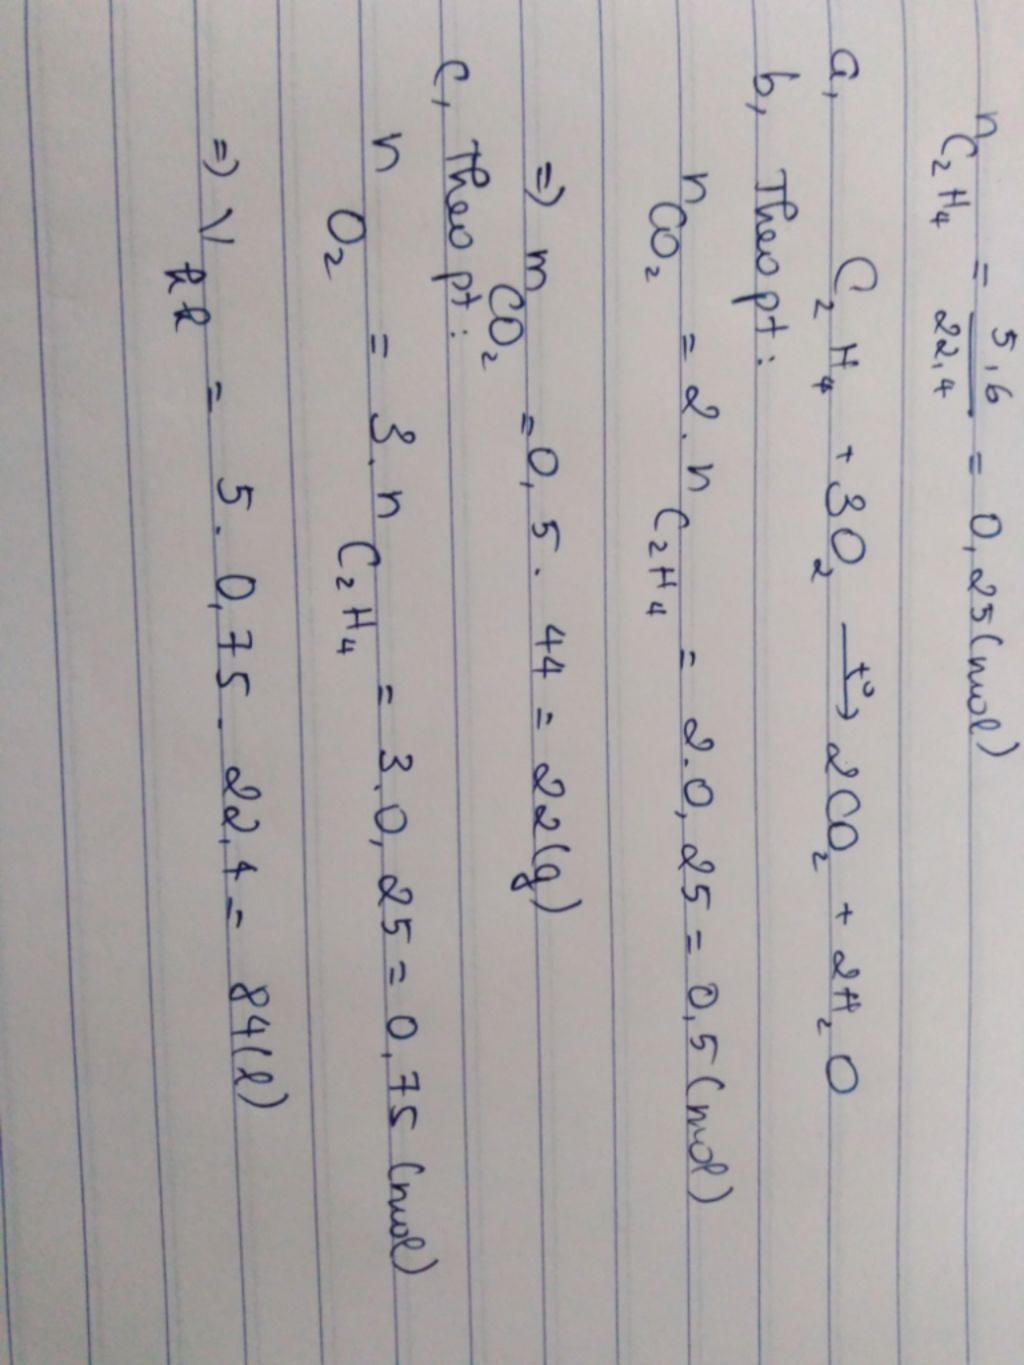 n C₂H₄ = 5,6/22,4 = 0,25(mol)
a, C₂H₄ + 3O₂ —t°→ 2CO₂ + 2H₂O
b, Theo pt:
n CO₂ = 2.n C₂H₄ = 2.0,25 = 0,5(mol)
=) m CO₂ = 0,5. 44 = 22(g)
C, Theo pt:
n O₂ = 3.n C₂H₄ = 3.0,25 = 0,75 (mol)
=) V kk = 5. 0,75. 22,4 = 84(l)